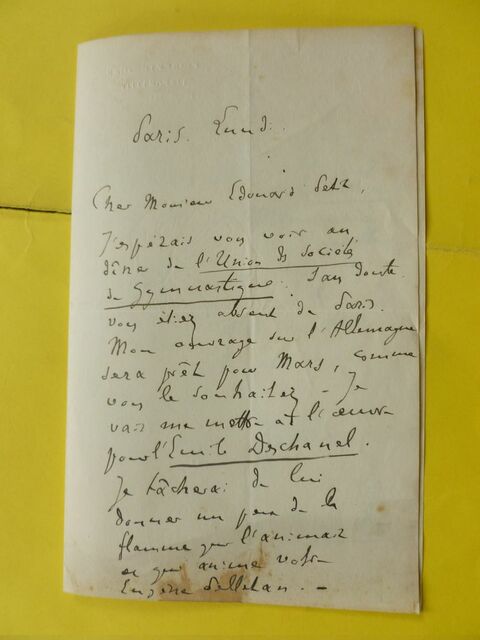 Paris. Lundi.
Cher Monsieur Edouard Petit,
J'espérais vous voir au
dîner de l'Union des Sociétés
de Gymnastique. Sans doute
vous étiez absent de Paris.
Mon ouvrage sur l'Allemagne
sera prêt pour Mars, comme
vous le souhaitez - Je
vais me mettre à l'œuvre
pour l'Emile Deschanel.
Je tâcherai de lui
donner un peu de la
flamme qui l'animait
et qui anime votre
Eugène Pelletan. -